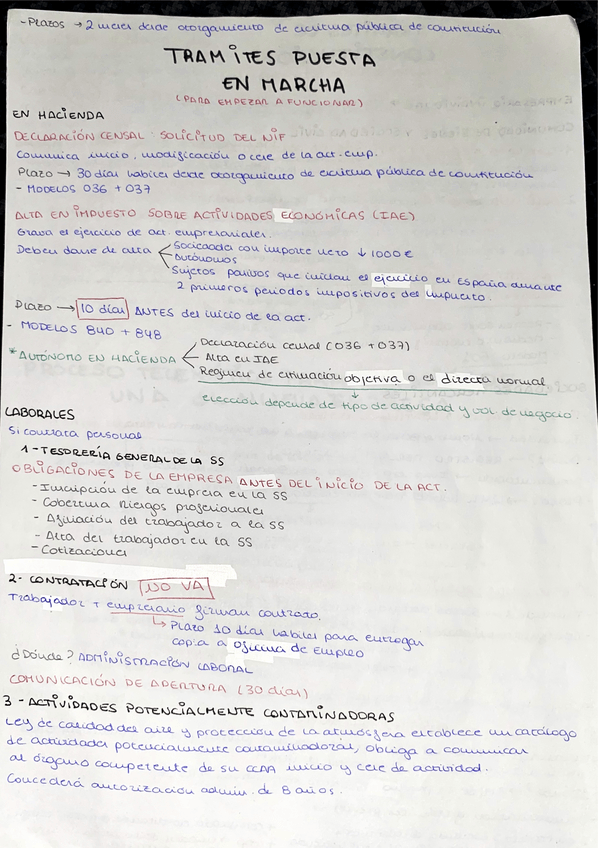 - Plazos → 2 meses desde otorgamiento de escritura pública de constitución
TRAMITES PUESTA
EN MARCHA
(PARA EMPEZAR A FUNCIONAR)
EN HACIENDA
DECLARACIÓN CENSAL: SOLICITUD DEL NIF
Comunica inicio, modificación o cese de la act. emp.
Plazo → 30 días habiles desde otorgamiento de escritura pública de constitución
- MODELOS 036 + 037
ALTA EN IMPUESTO SOBRE ACTIVIDADES ECONÓMICAS (IAE)
Grava el ejercicio de act. empresariales.
Deben darse de alta
Sociedades con importe neto ↓ 1000 €
Autónomos
Sujetos pasivos que inician el ejercicio en España durante
2 primeros periodos impositivos del impuesto.
Plazo → 10 días ANTES del inicio de la act.
- MODELOS 840 + 848
*AUTÓNOMO EN HACIENDA
Declaración censal (036 + 037)
Alta en IAE
Regimen de estimación objetiva o el directa normal
↓
elección depende de tipo de actividad y vol. de negocio.
LABORALES
Si contrata personal
1 - TESORERÍA GENERAL DE LA SS
OBLIGACIONES DE LA EMPRESA ANTES DEL INICIO DE LA ACT.
- Inscripción de la empresa en la SS
- Cobertura riesgos profesionales
- Afiliación del trabajador a la SS
- Alta del trabajador en la SS
- Cotizaciones
2 - CONTRATACIÓN NO VA
Trabajador + empresario firman contrato.
↳ Plazo 10 días habiles para entregar
copia a oficina de empleo
¿Dónde? ADMINISTRACIÓN LABORAL
COMUNICACIÓN DE APERTURA (30 días)
3 - ACTIVIDADES POTENCIALMENTE CONTAMINADORAS
Ley de calidad del aire y protección de la atmósfera establece un catálogo
de actividades potencialmente contaminadoras, obliga a comunicar
al órgano competente de su CCAA inicio y cese de actividad.
Concederá autorización admin. de 8 años.